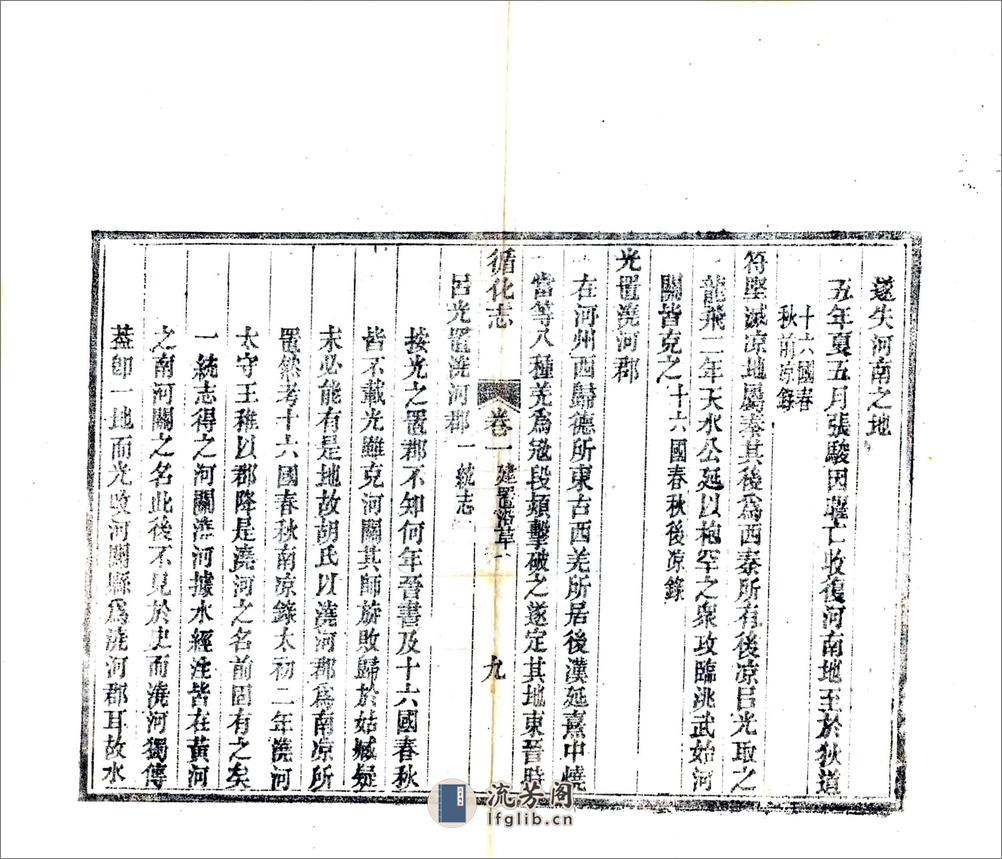 遂失河南之地
五年夏五月張駿因曜亡收復河南地至於狄道
十六國春
秋前凉錄
符堅滅凉地屬秦其後爲西秦所有後凉呂光取之
龍飛二年天水公延以枹罕之衆攻臨洮武始河
關皆克之十六國春秋後凉錄
光置澆河郡
在河州西歸德所東古西羌所居後漢延熹中燒
當等八種羌爲寇段熲擊破之遂定其地東晉時
循化志
卷一建置沿革
九
呂光置澆河郡一統志
按光之置郡不知何年晉書及十六國春秋
皆不載光雖克河關其師旋敗歸於姑臧疑
未必能有是地故胡氏以澆河郡爲南凉所
置然考十六國春秋南凉錄太初二年澆河
太守王稚以郡降是澆河之名前固有之矣
一統志得之河關澆河據水經注皆在黃河
之南河關之名此後不見於史而澆河獨傳
葢卽一地而光改河關縣爲澆河郡耳故水
流芳阁
lfglib.cn